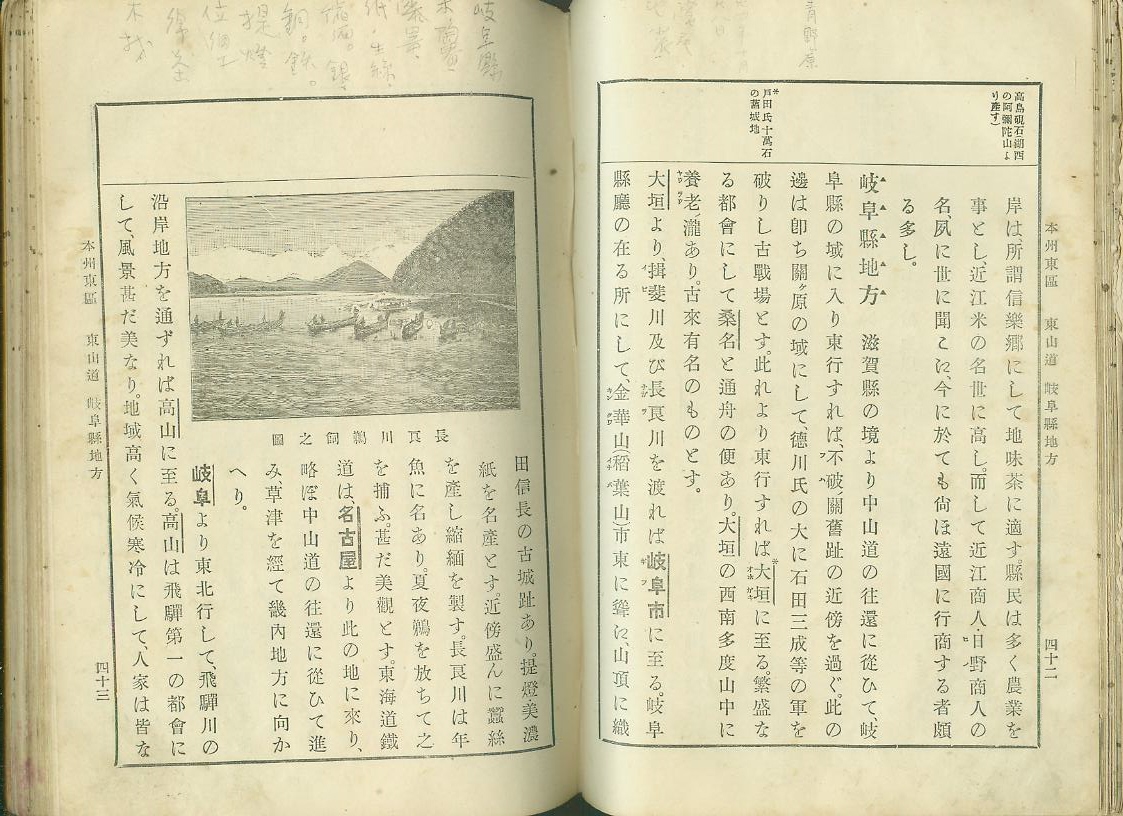 本州東區　東山道　岐阜縣地方　四十二
高島硯石(湖西
の阿彌陀山よ
り產す)
戶田氏十萬石
の舊城地
岸は所謂信樂鄕にして地味茶に適す。縣民は多く農業を
事とし、近江米の名世に高し。而して近江商人、日野商人の
名、夙に世に聞こえ、今に於ても尙ほ遠國に行商する者頗
る多し。
岐阜縣地方　滋賀縣の境より中山道の往還に從ひて、岐
阜縣の域に入り東行すれば、不破關舊趾の近傍を過ぐ。此の
邊は卽ち關ヶ原の域にして、德川氏の大に石田三成等の軍を
破りし古戰場とす。此れより東行すれば大垣に至る。繁盛な
る都會にして桑名と通舟の便あり。大垣の西南多度山中に
養老瀧あり。古來有名のものとす。
大垣より、揖斐川及び長良川を渡れば岐阜市に至る。岐阜
縣廳の在る所にして、金華山(稻葉山)市東に聳え、山頂に織
岐阜縣
長良川鵜飼之圖
田信長の古城趾あり。提燈美濃
紙を名產とす。近傍盛んに蠶絲
を產し縮緬を製す。長良川は年
魚に名あり。夏夜鵜を放ちて之
を捕ふ。甚だ美觀とす。東海道鐵
道は、名古屋より此の地に來り、
略ぼ中山道の往還に從ひて進
み、草津を經て畿內地方に向か
へり。
岐阜より東北行して、飛驒川の
沿岸地方を通ずれば高山に至る。高山は飛驒第一の都會に
して、風景甚だ美なり。地域高く氣候寒冷にして、人家は皆な
本州東區　東山道　岐阜縣地方　四十三